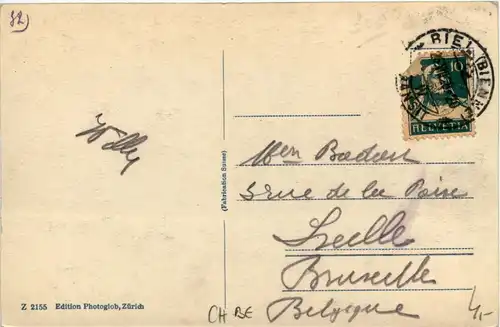 32)
BIEL (BIENNE)
10
HELVETIA
Willy
(Fabrication Suisse)
Badan
5 rue de la Paix
Ixelle
Bruxelle
Belgique
Z 2155 Edition Photoglob, Zürich
CH BE
4,-